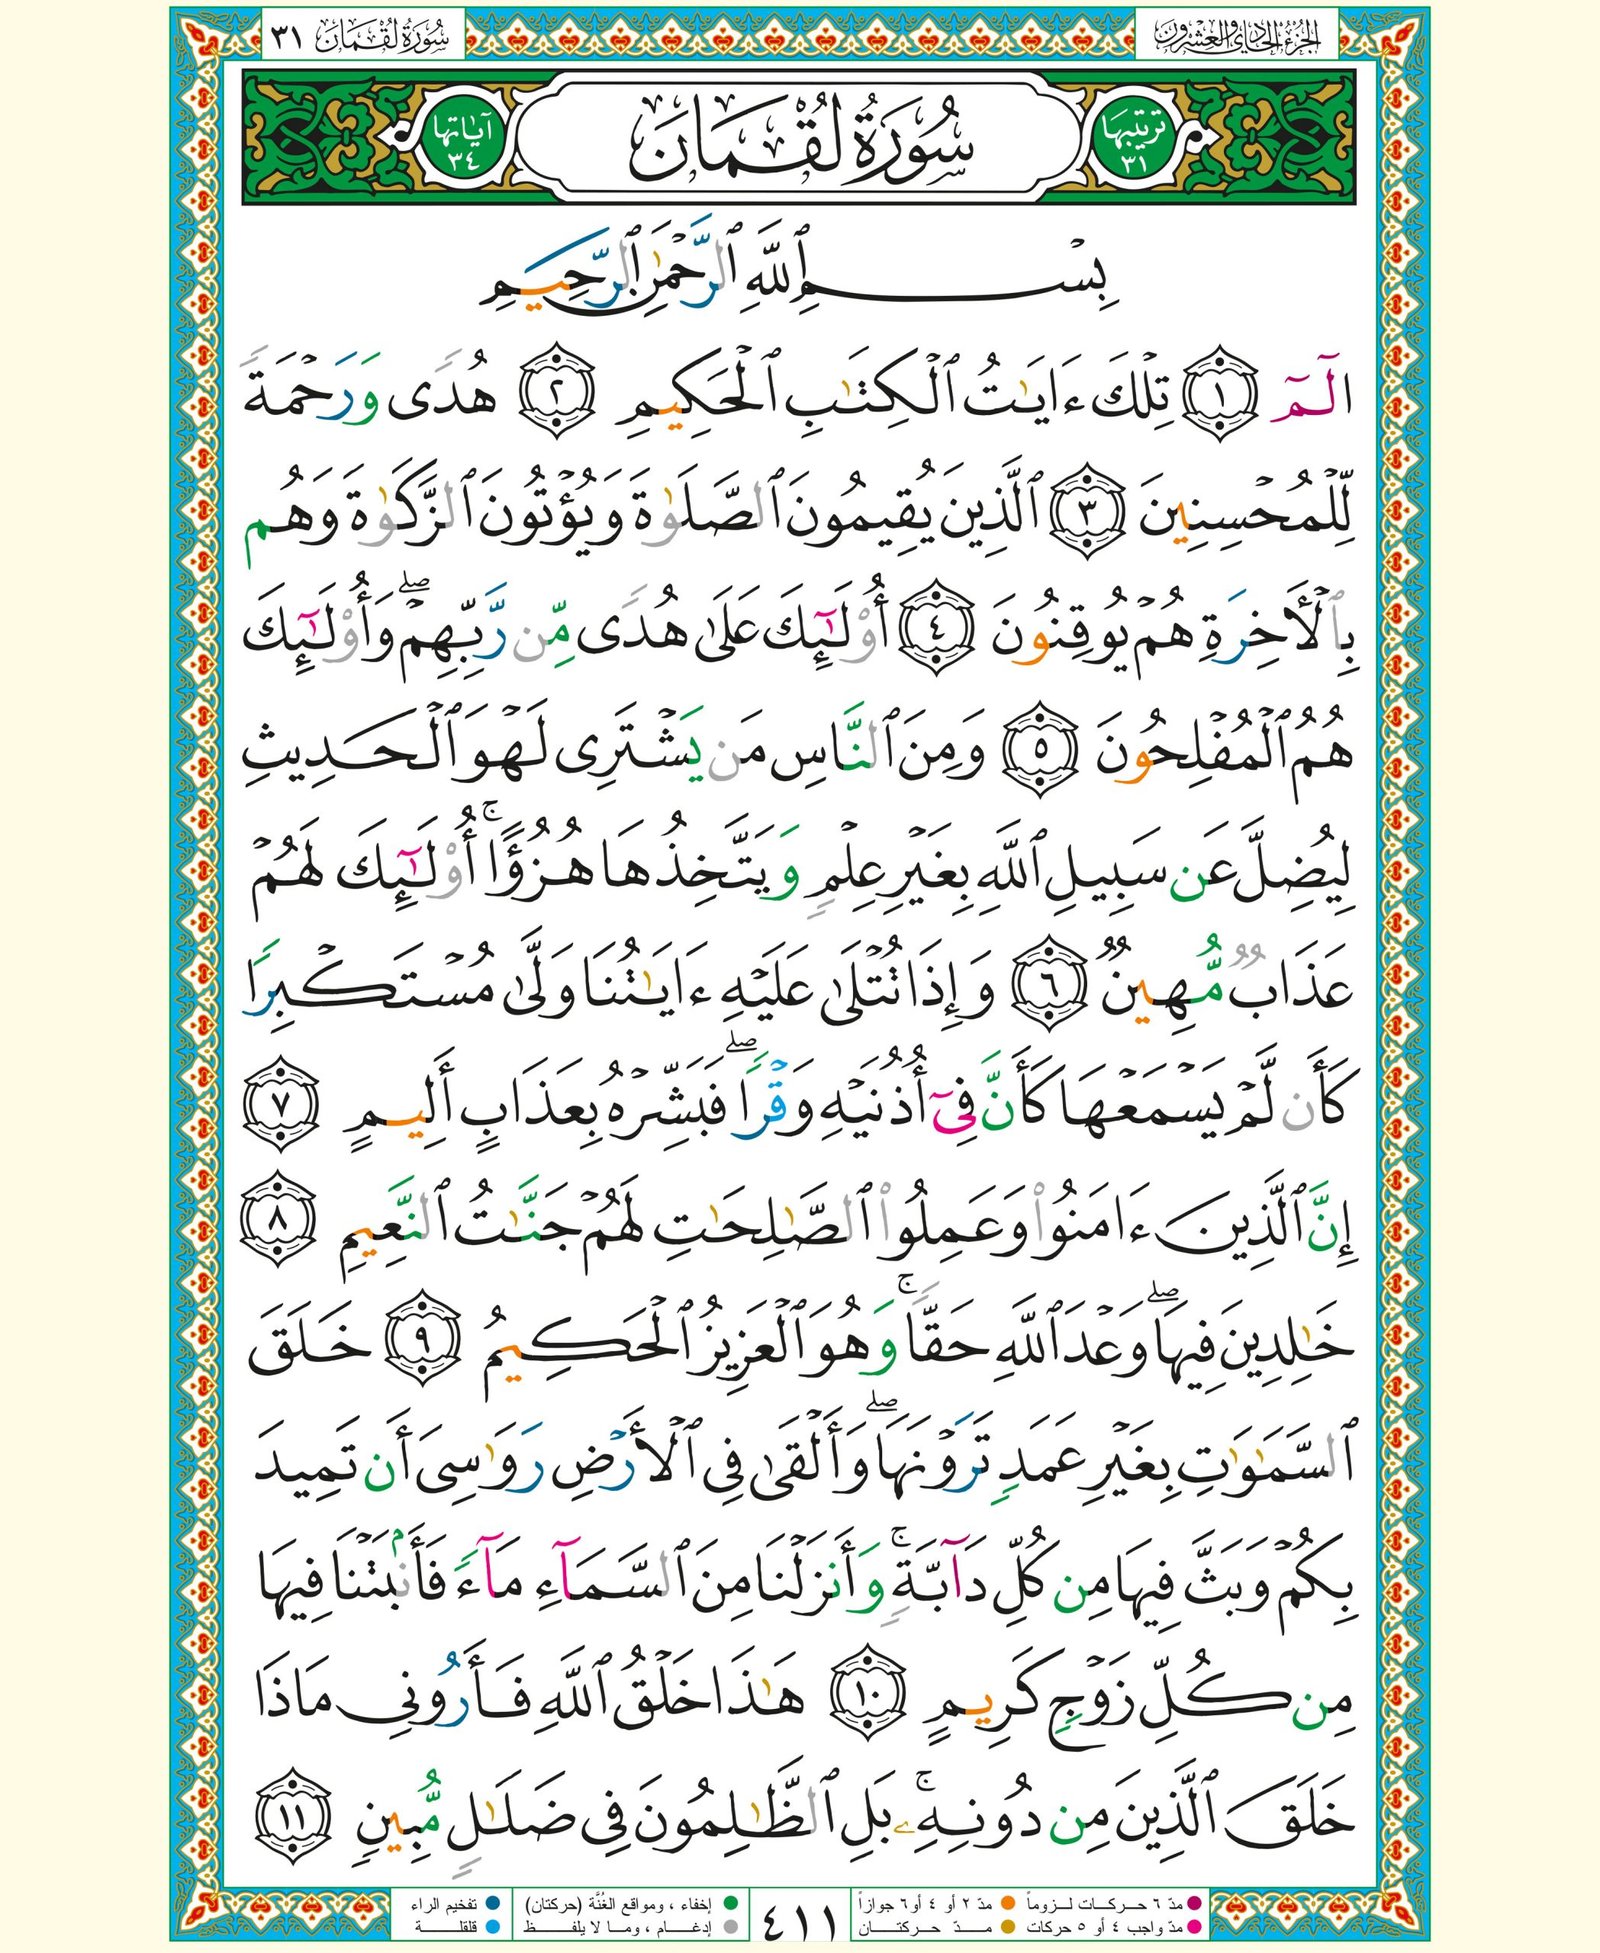 الجزء الحادي والعشرون
سورة لقمان ٣١
ترتيبها ٣١
سُورَةُ لُقْمَانَ
آياتها ٣٤
بِسْمِ ٱللَّهِ ٱلرَّحْمَٰنِ ٱلرَّحِيمِ
الٓمٓ ١ تِلْكَ ءَايَٰتُ ٱلْكِتَٰبِ ٱلْحَكِيمِ ٢ هُدًى وَرَحْمَةً
لِّلْمُحْسِنِينَ ٣ ٱلَّذِينَ يُقِيمُونَ ٱلصَّلَوٰةَ وَيُؤْتُونَ ٱلزَّكَوٰةَ وَهُم
بِٱلْأَخِرَةِ هُمْ يُوقِنُونَ ٤ أُو۟لَٰٓئِكَ عَلَىٰ هُدًى مِّن رَّبِّهِمْ ۖ وَأُو۟لَٰٓئِكَ
هُمُ ٱلْمُفْلِحُونَ ٥ وَمِنَ ٱلنَّاسِ مَن يَشْتَرِى لَهْوَ ٱلْحَدِيثِ
لِيُضِلَّ عَن سَبِيلِ ٱللَّهِ بِغَيْرِ عِلْمٍ وَيَتَّخِذَهَا هُزُوًا ۚ أُو۟لَٰٓئِكَ لَهُمْ
عَذَابٌ مُّهِينٌ ٦ وَإِذَا تُتْلَىٰ عَلَيْهِ ءَايَٰتُنَا وَلَّىٰ مُسْتَكْبِرًا
كَأَن لَّمْ يَسْمَعْهَا كَأَنَّ فِىٓ أُذُنَيْهِ وَقْرًا ۖ فَبَشِّرْهُ بِعَذَابٍ أَلِيمٍ ٧
إِنَّ ٱلَّذِينَ ءَامَنُوا۟ وَعَمِلُوا۟ ٱلصَّٰلِحَٰتِ لَهُمْ جَنَّٰتُ ٱلنَّعِيمِ ٨
خَٰلِدِينَ فِيهَا ۖ وَعْدَ ٱللَّهِ حَقًّا ۚ وَهُوَ ٱلْعَزِيزُ ٱلْحَكِيمُ ٩ خَلَقَ
ٱلسَّمَٰوَٰتِ بِغَيْرِ عَمَدٍ تَرَوْنَهَا ۖ وَأَلْقَىٰ فِى ٱلْأَرْضِ رَوَٰسِىَ أَن تَمِيدَ
بِكُمْ وَبَثَّ فِيهَا مِن كُلِّ دَآبَّةٍ ۚ وَأَنزَلْنَا مِنَ ٱلسَّمَآءِ مَآءً فَأَنۢبَتْنَا فِيهَا
مِن كُلِّ زَوْجٍ كَرِيمٍ ١٠ هَٰذَا خَلْقُ ٱللَّهِ فَأَرُونِى مَاذَا
خَلَقَ ٱلَّذِينَ مِن دُونِهِۦ ۚ بَلِ ٱلظَّٰلِمُونَ فِى ضَلَٰلٍ مُّبِينٍ ١١
مدّ ٦ حركات لزوماً مدّ ٢ أو ٤ أو ٦ جوازاً
مدّ واجب ٤ أو ٥ حركات مدّ حركتان
٤١١
إخفاء ، ومواقع الغُنَّة (حركتان) تفخيم الراء
إدغام ، وما لا يلفظ قلقلة